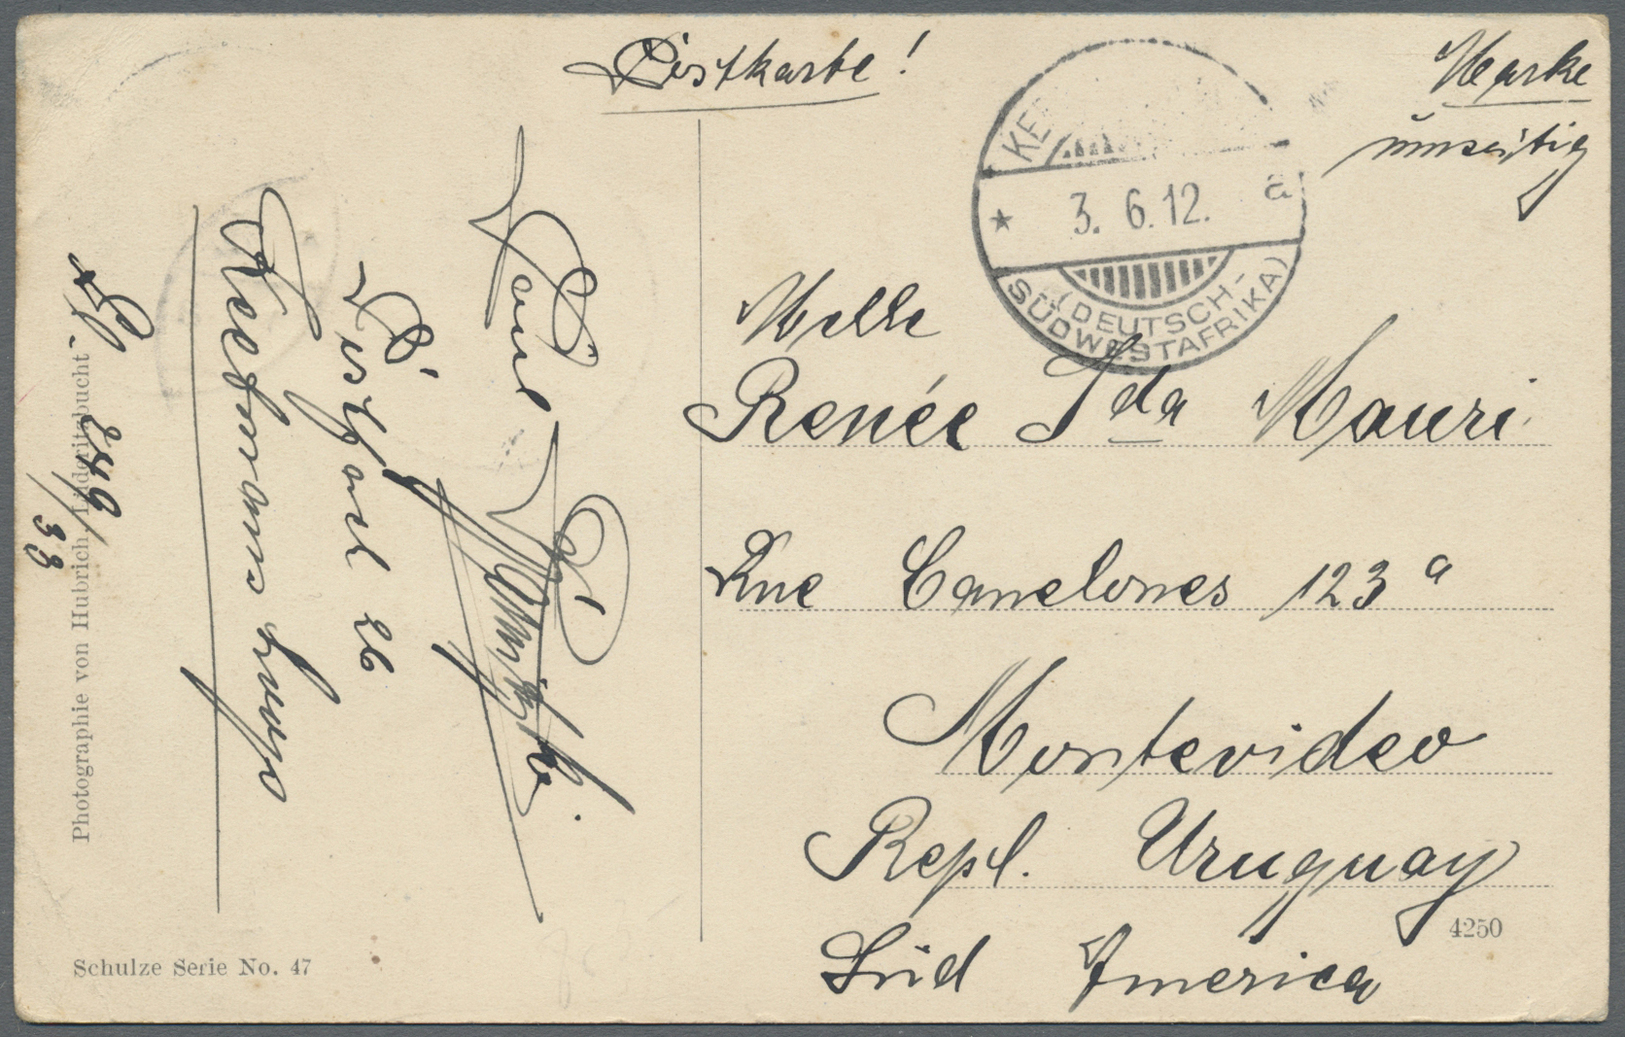 Postkarte!
Marke
umseitig
KE
3. 6. 12. a
(DEUTSCH-
SÜDWESTAFRIKA)
Melle
Renée Ida Mauri
Rue Canelones 123 a
Montevideo
Repl. Uruguay
Süd America
4250
Paul
Postfach 26
Keetmanshoop
249/33
Photographie von Hubrich, Lüderitzbucht
Schulze Serie No. 47